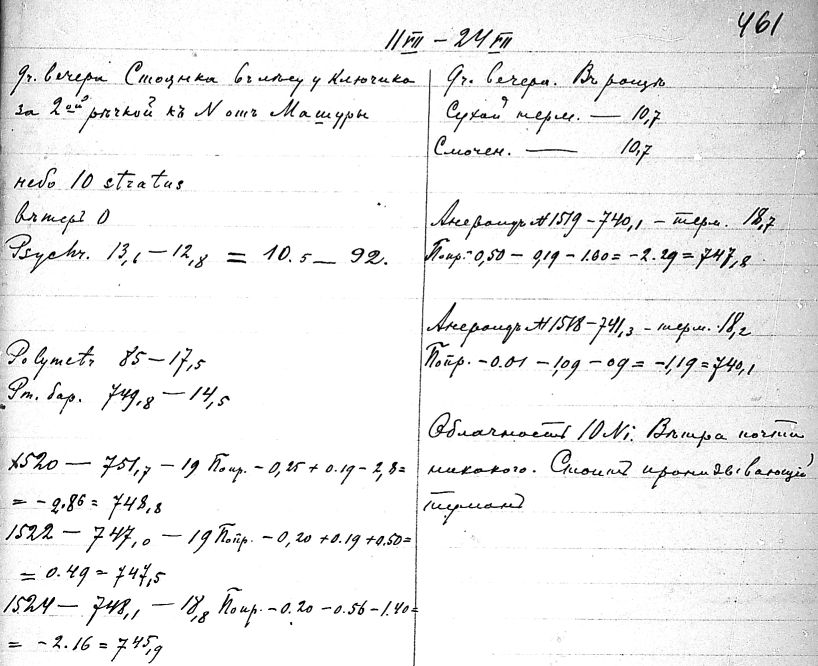 461
11 VII – 24 VII
9ч. вечера Стоянка въ лѣсу у ключика
за 2ой рѣчкой къ N отъ Машуры
небо 10 stratus
вѣтеръ 0
Psychr. 13,6 – 12,8 = 10.5 – 92.
Polymetr 85 – 17,5
Рт. бар. 749,8 – 14,5
1520 – 751,7 – 19 Попр. – 0,25 + 0.19 – 2,8=
= – 2.86 = 748,8
1522 – 747,0 – 19 Попр. – 0,20 + 0.19 + 0.50=
= 0.49 = 747,5
1524 – 748,1 – 18,8 Попр. – 0.20 – 0.56 – 1.40=
= – 2.16 = 745,9
9ч. вечера. Въ рощѣ
Сухой терм. – 10,7
Смочен. – 10,7
Анероидъ № 1519 – 740,1 – терм. 18,7
Попр. – 0,50 – 0,19 – 1.60 = – 2.29 = 747,8
Анероидъ № 1518 – 741,3 – терм. 18,2
Попр. – 0.01 – 1,09 – 09 = – 1,19 = 740,1
Облачность 10 Ni. Вѣтра почти
никакого. Стоитъ пронизывающій
туманъ